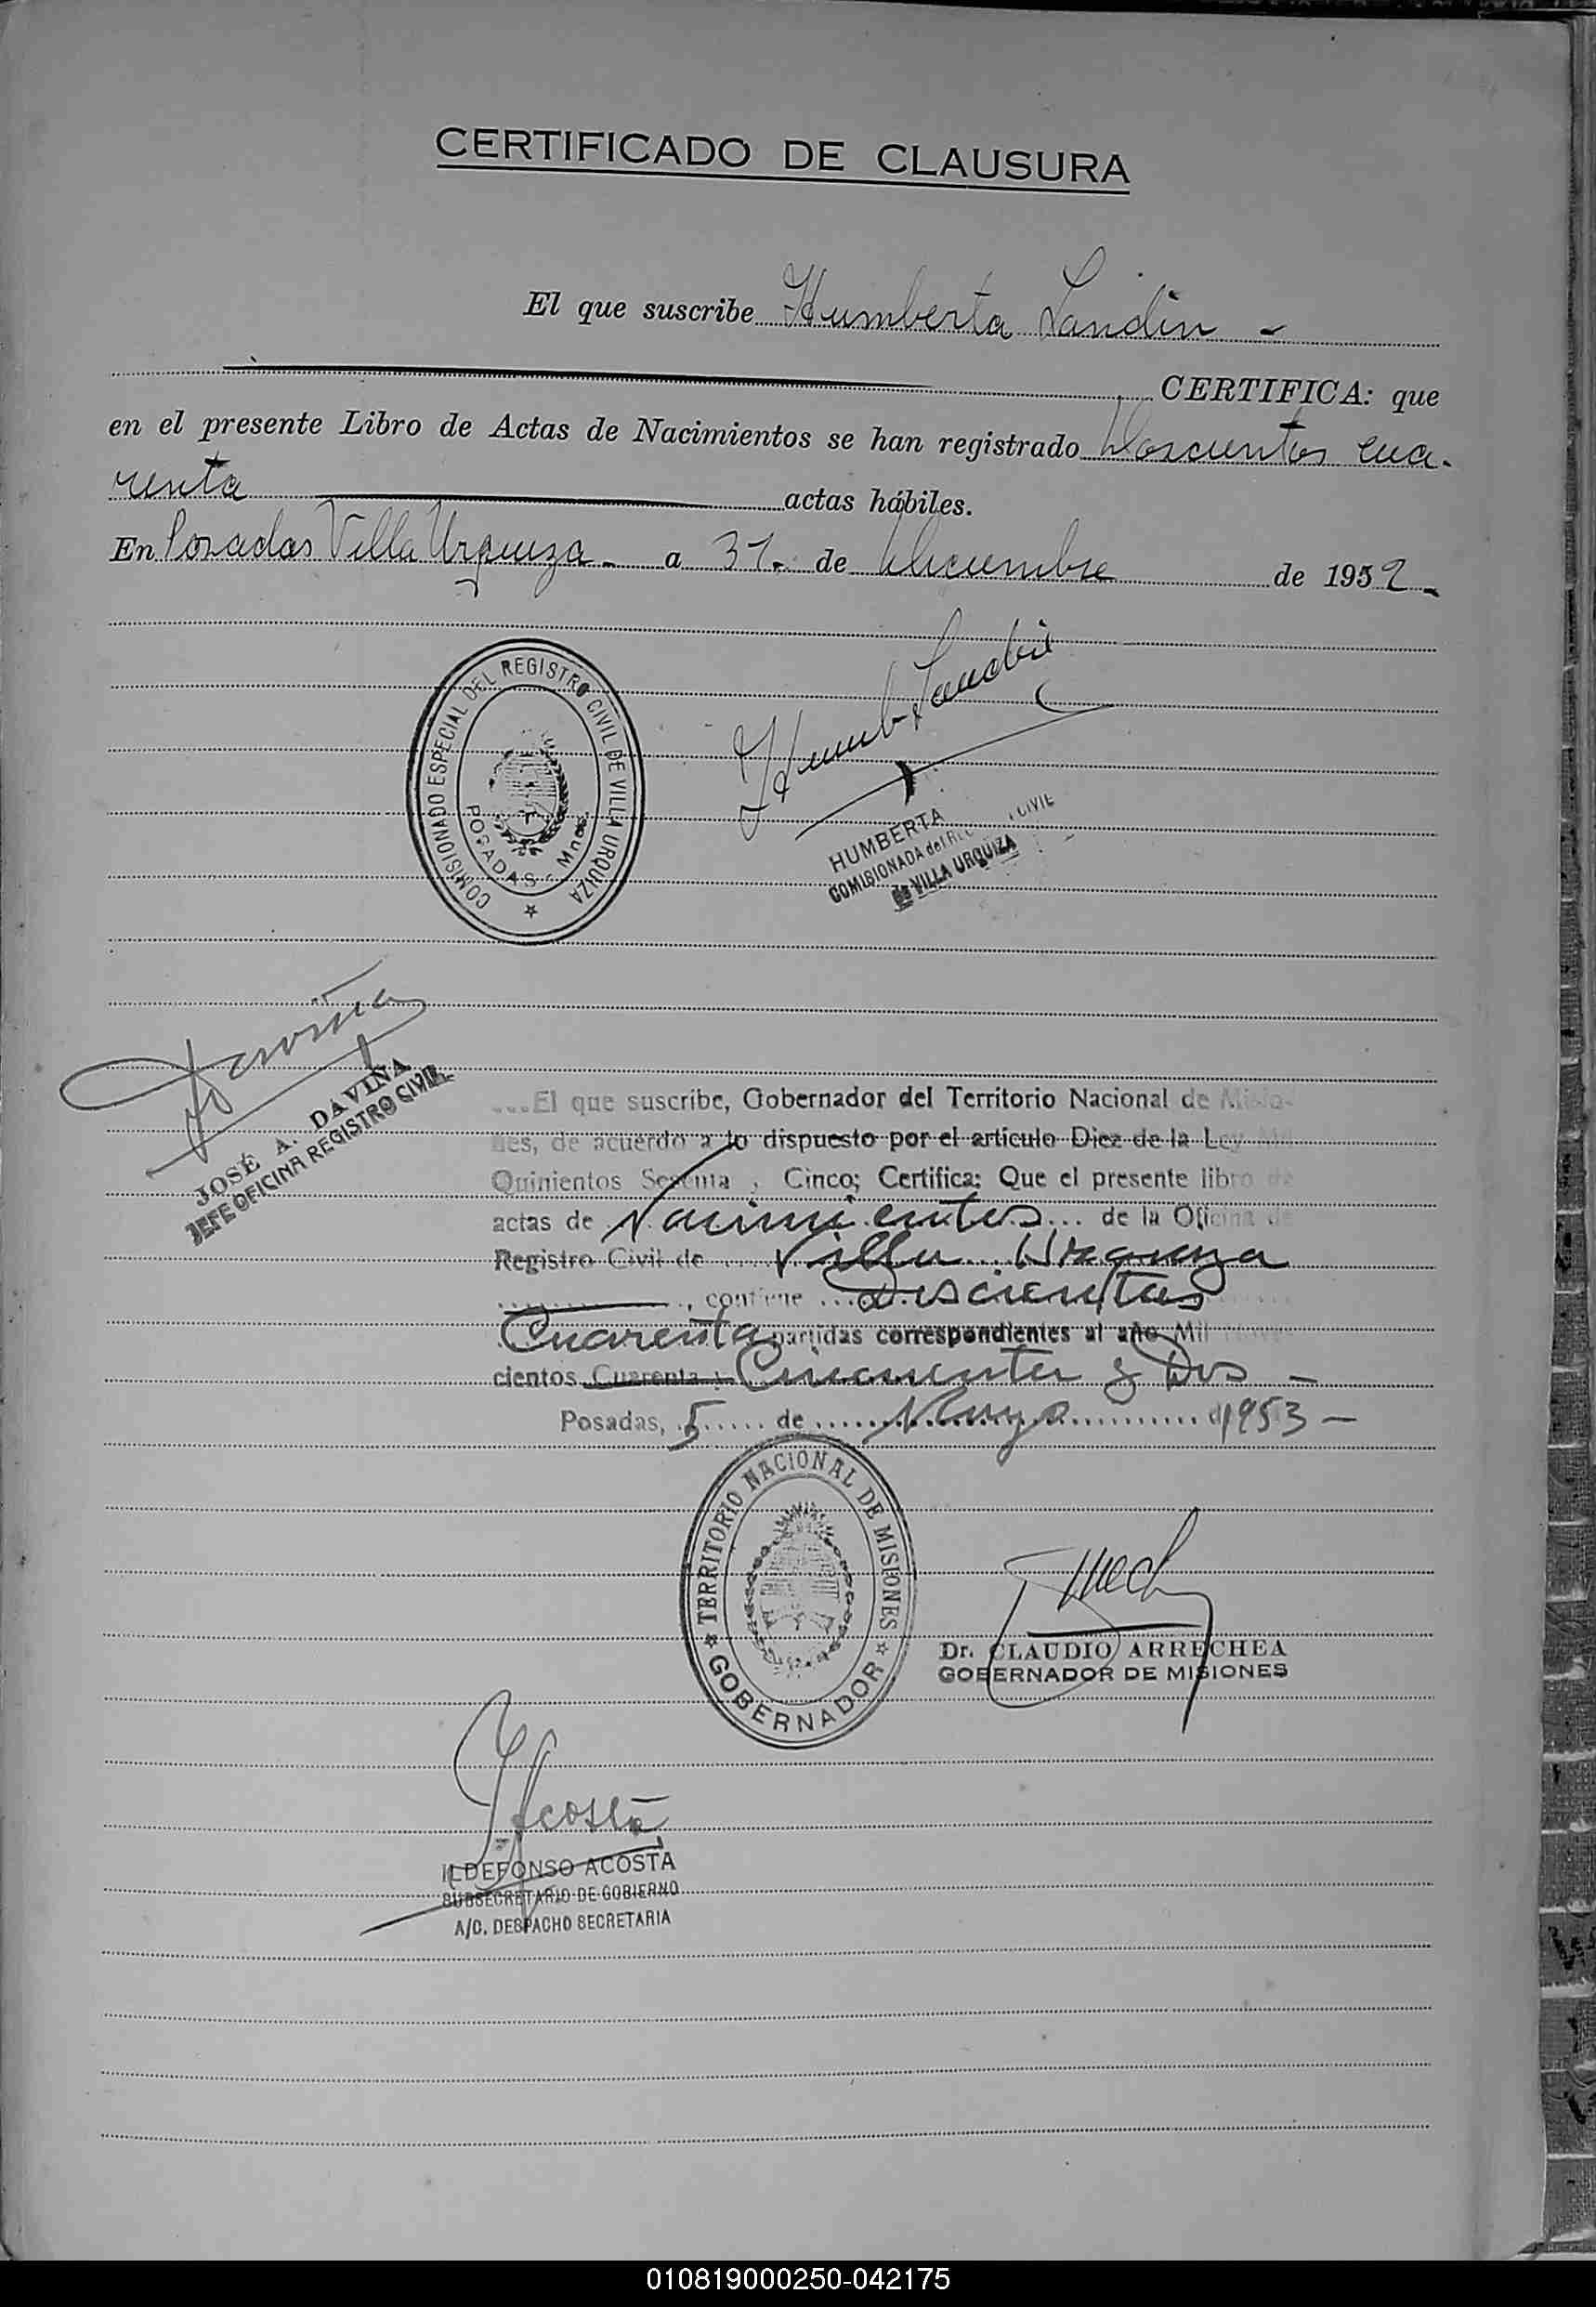 CERTIFICADO DE CLAUSURA
El que suscribe Humberta Landin -
CERTIFICA: que
en el presente Libro de Actas de Nacimientos se han registrado Doscientos cua-
renta actas hábiles.
En Posadas Villa Urquiza - a 31. de Diciembre de 1952 -
COMISIONADO ESPECIAL DEL REGISTRO CIVIL DE VILLA URQUIZA
POSADAS - Mnes.
HUMBERTA
COMISIONADA del REG CIVIL
de VILLA URQUIZA
Daviña
JOSÉ A. DAVIÑA
JEFE OFICINA REGISTRO CIVIL
...El que suscribe, Gobernador del Territorio Nacional de Misio-
nes, de acuerdo a lo dispuesto por el artículo Diez de la Ley Mil
Quinientos Sesenta y Cinco; Certifica: Que el presente libro de
actas de Nacimientos ... de la Oficina de
Registro Civil de Villa Urquiza
, contiene Doscientas
Cuarenta partidas correspondientes al año Mil nove-
cientos Cuarenta y Cincuenta y Dos -
Posadas, 5 de Mayo d 1953 -
TERRITORIO NACIONAL DE MISIONES
GOBERNADOR
Dr. CLAUDIO ARRECHEA
GOBERNADOR DE MISIONES
Acosta
ILDEFONSO ACOSTA
SUBSECRETARIO DE GOBIERNO
A/C. DESPACHO SECRETARIA
010819000250-042175